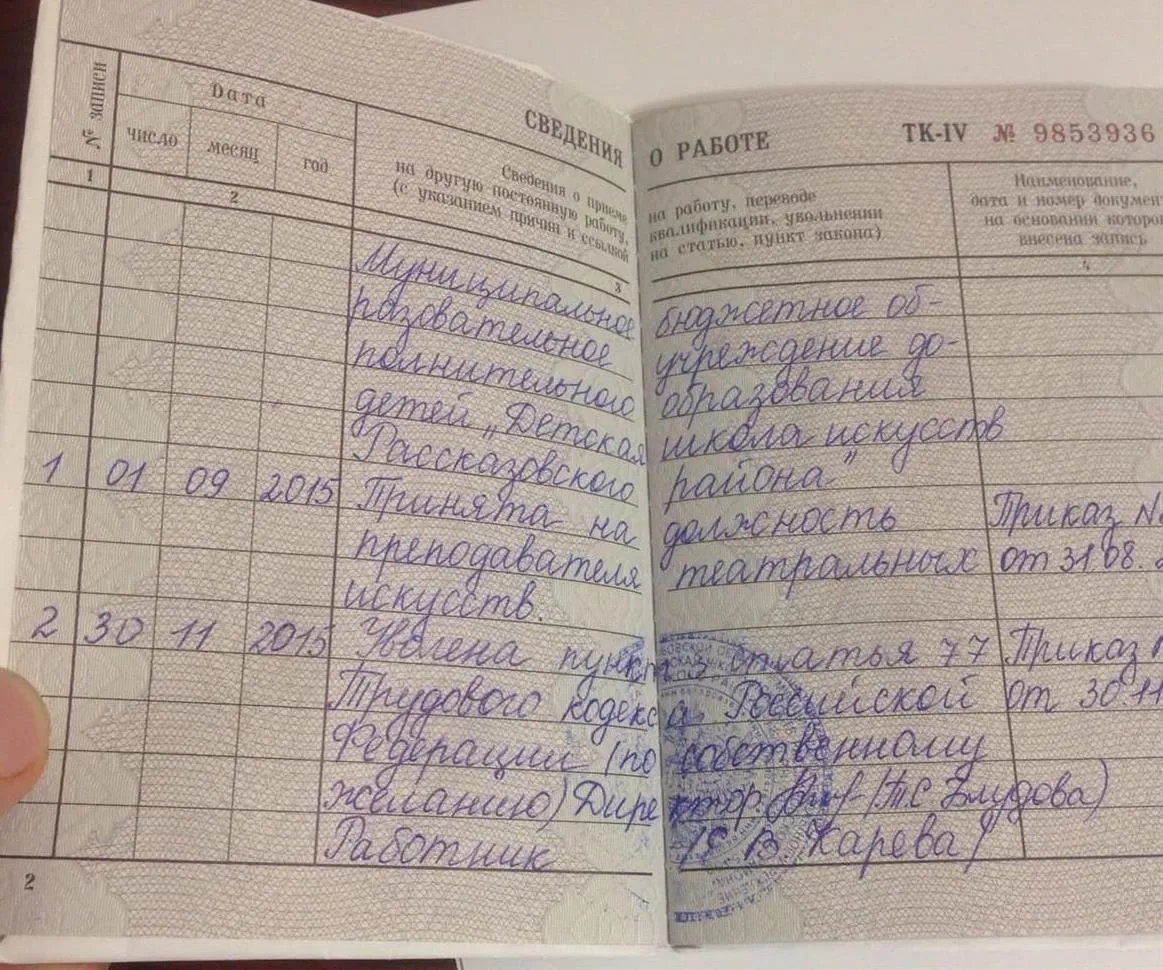 СВЕДЕНИЯ О РАБОТЕ ТК-IV № 9853936
№ записи
Дата
число месяц год
Сведения о приеме на работу, переводе
на другую постоянную работу, квалификации, увольнении
(с указанием причин и ссылкой на статью, пункт закона)
Наименование,
дата и номер докумен
на основании которо
внесена запись
1 2 3 4
Муниципальное бюджетное об-
разовательное учреждение до-
полнительного образования
детей „Детская школа искусств
Рассказовского района"
1 01 09 2015 Принята на должность Приказ №
преподавателя театральных от 31.08.
искусств.
2 30 11 2015 Уволена пункт статья 77 Приказ
Трудового кодекса Российской от 30.11
Федерации (по собственному
желанию) Директор (Т С Блудова)
Работник /С В Карева/
2